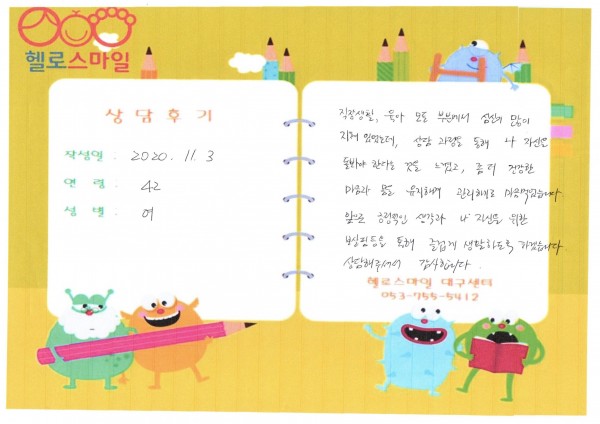 헬로스마일
상담후기
작성일 : 2020. 11. 3
연 령 : 42
성 별 : 여
직장생활, 육아 모든 부분에서 심신이 많이
지쳐 있었는데, 상담 과정을 통해 나 자신을
돌봐야 한다는 것을 느꼈고, 좀 더 건강한
마음과 몸을 유지하며 관리하기로 마음먹었습니다.
앞으로 긍정적인 생각과 나 자신을 위한
보상점등을 통해 즐겁게 생활하도록 하겠습니다.
상담해주셔서 감사합니다.
헬로스마일 대구센터
053-755-5412